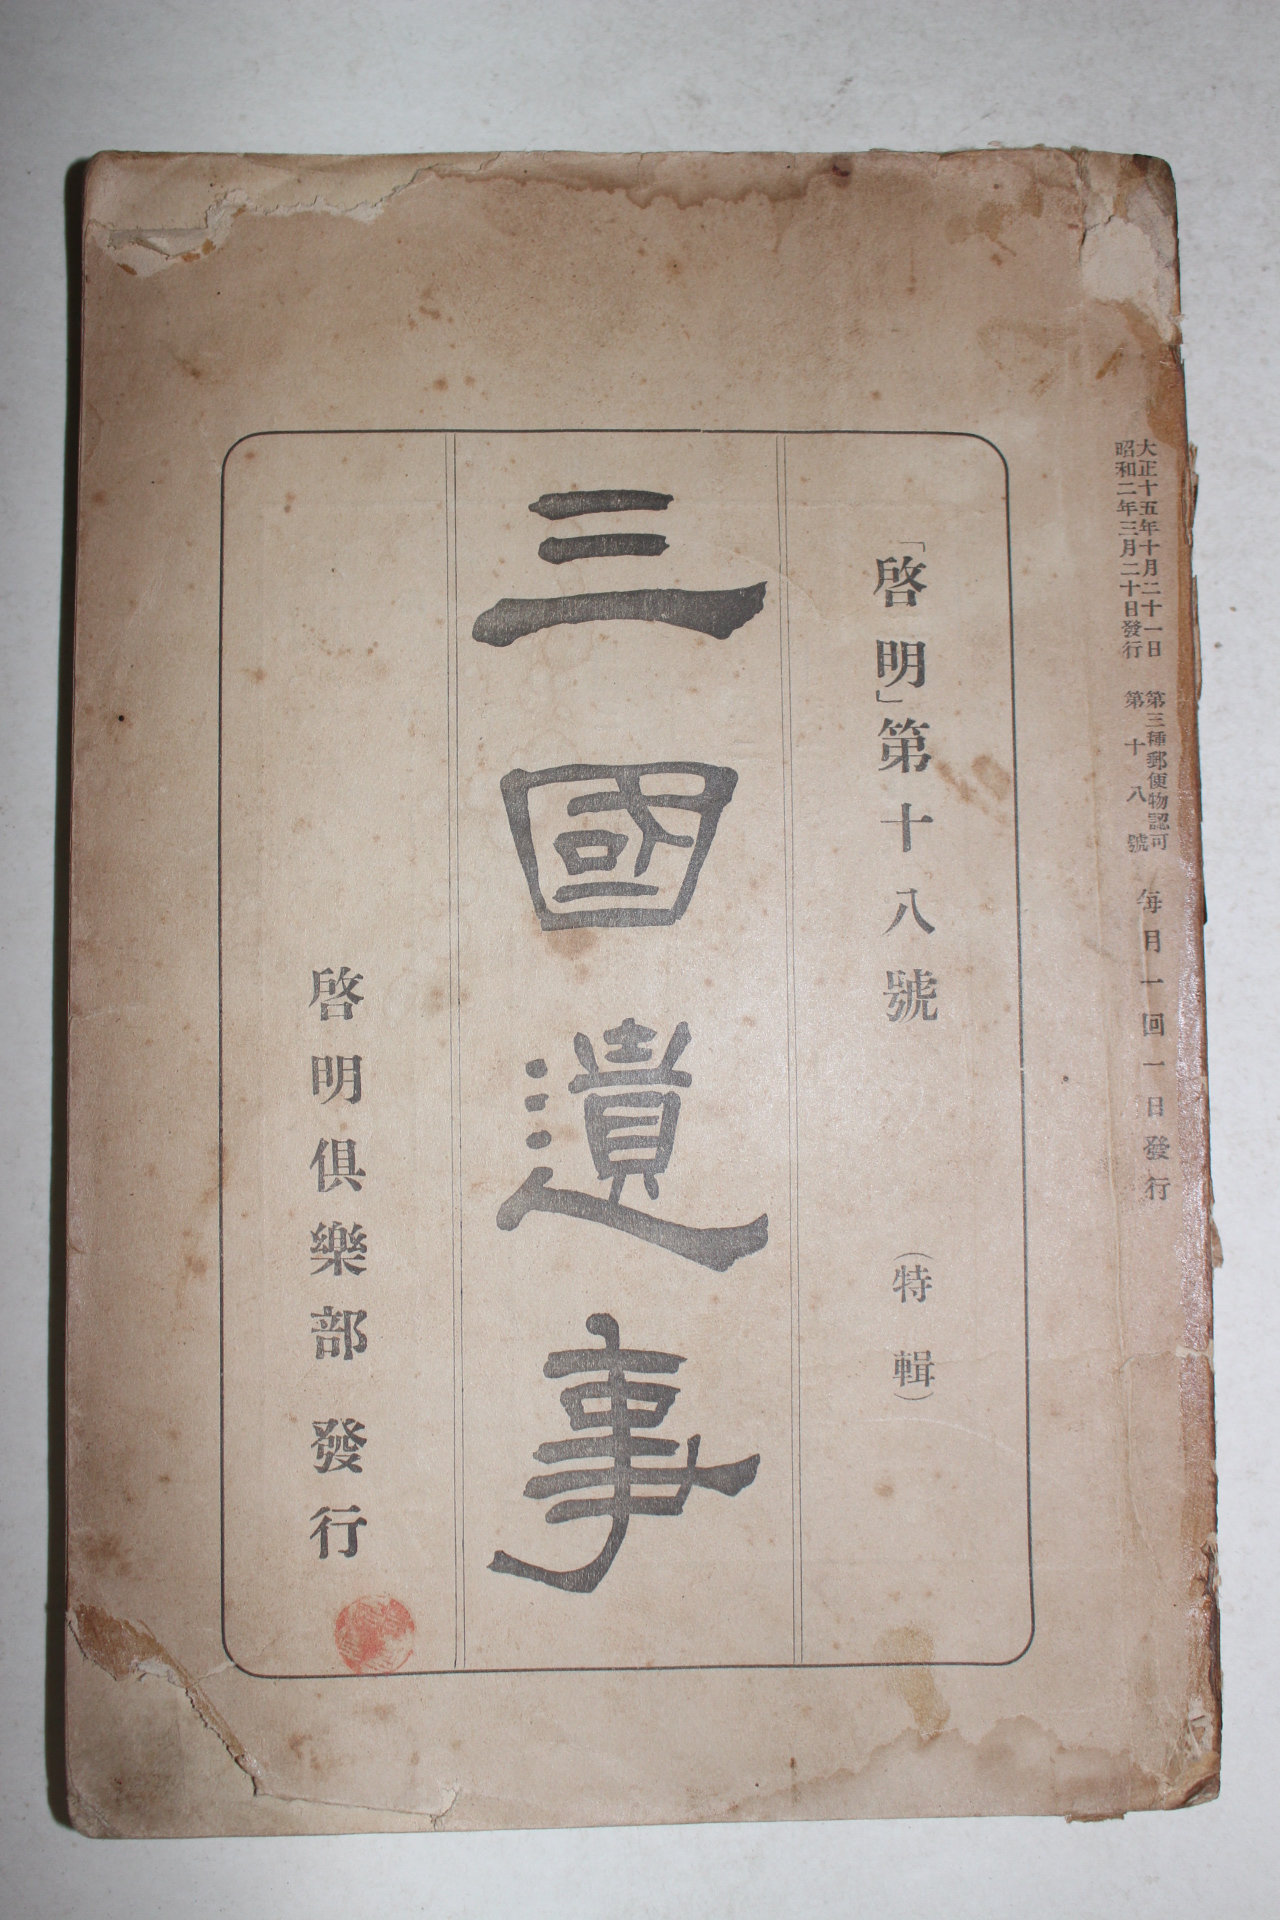 大正十五年十月二十一日 第三種郵便物認可
昭和二年三月二十日發行 第十八號
每月一回一日發行
「啓明」第十八號 (特輯)
三國遺事
啓明俱樂部 發行